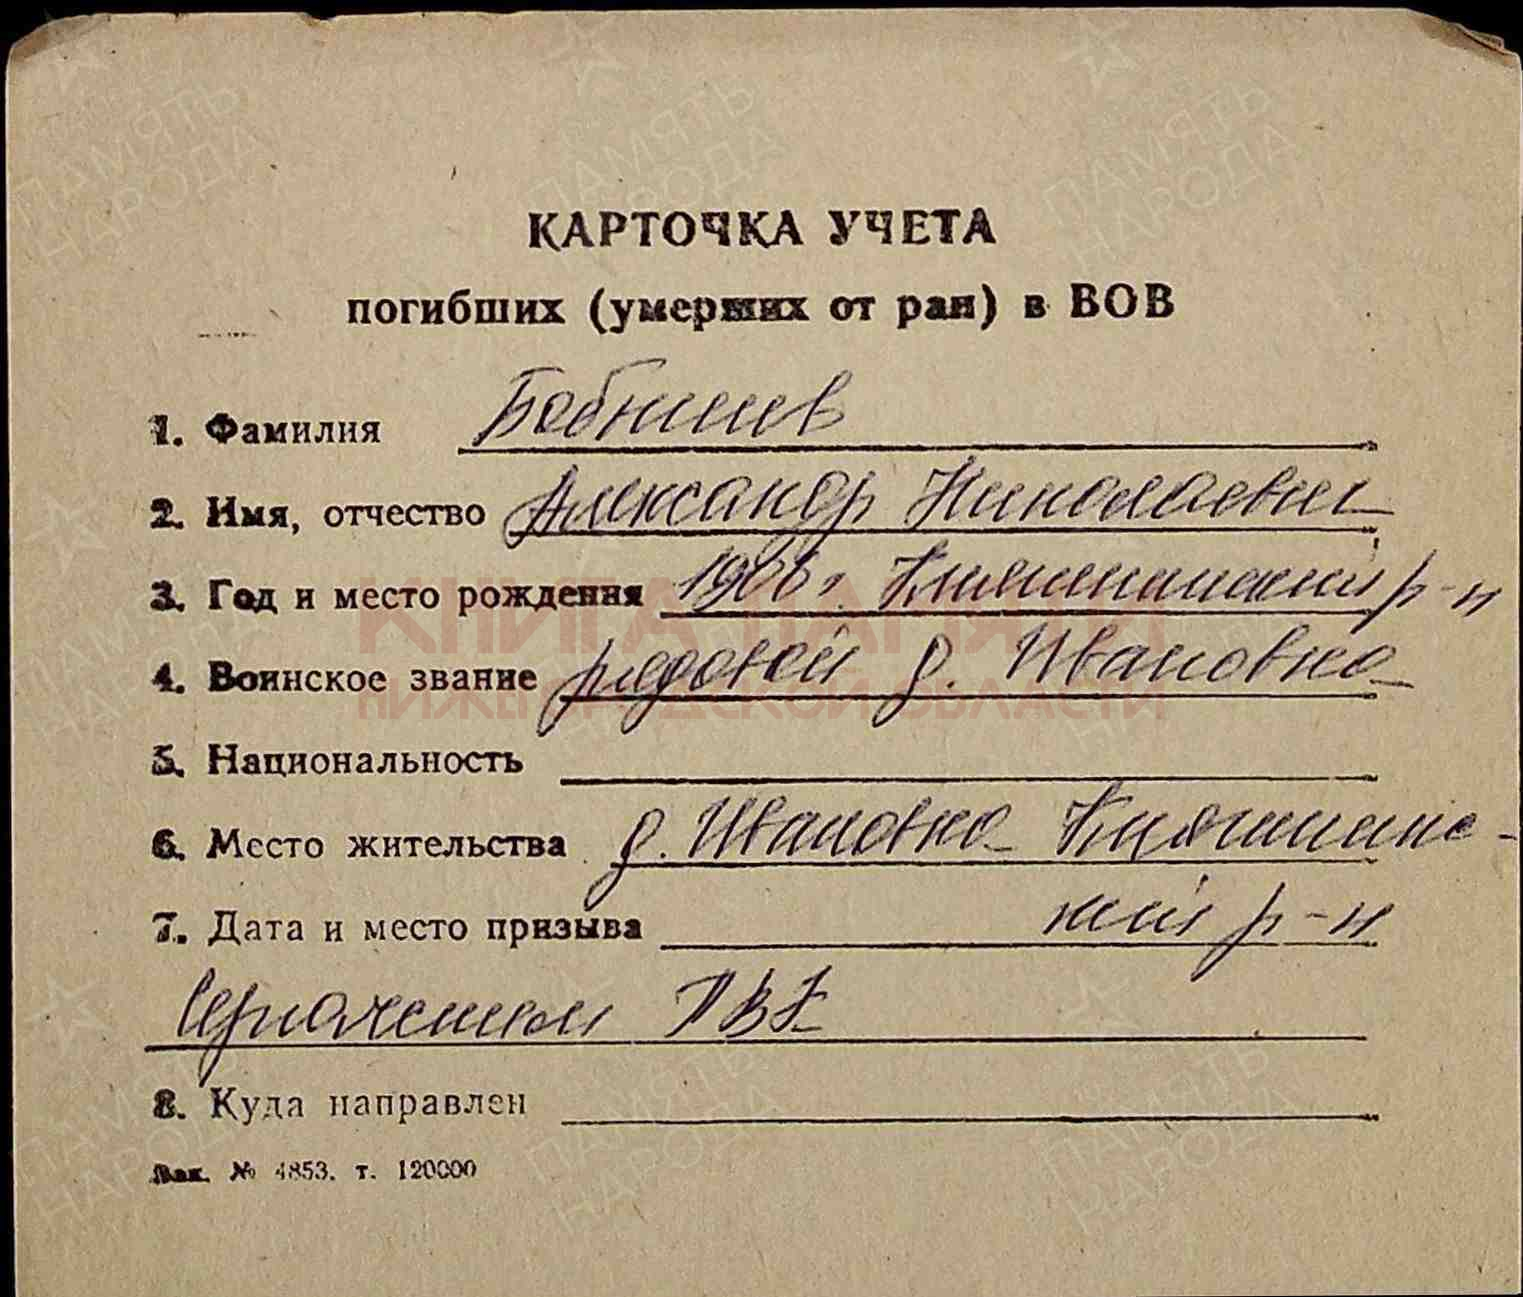 КАРТОЧКА УЧЕТА
погибших (умерших от ран) в ВОВ
1. Фамилия Бобнишев
2. Имя, отчество Александр Николаевич
3. Год и место рождения 1906 г. р-н
4. Воинское звание рядовой д. Ивановка
5. Национальность
6. Место жительства д. Ивановка
7. Дата и место призыва кий р-н
РВК
8. Куда направлен
Зак. № 4853. т. 120000
КНИГА ПАМЯТИ
НИЖЕГОРОДСКОЙ ОБЛАСТИ
ПАМЯТЬ
НАРОДА